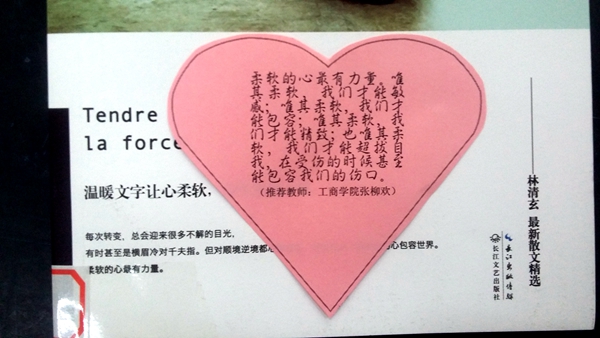 柔软的心最有力量。唯
其柔软，我们才能敏
感；唯其柔软，我们才
能包容；唯其柔软，我
们才能精致；也唯其柔
软，我们才能超拔自
我，在受伤的时候甚至
能包容我们的伤口。
（推荐教师：工商学院张柳欢）
Tendre
la force
温暖文字让心柔软，
每次转变，总会迎来很多不解的目光，
有时甚至是横眉冷对千夫指。但对顺境逆境都心
心包容世界。
柔软的心最有力量。
林清玄 最新散文精选
长江出版传媒
长江文艺出版社